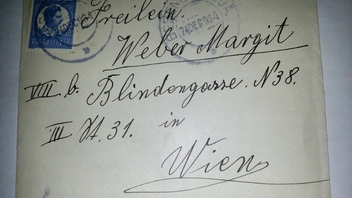 Freilein.
Weber Margit
VIII b. Blindengasse. N38.
III St. 31. in
Wien